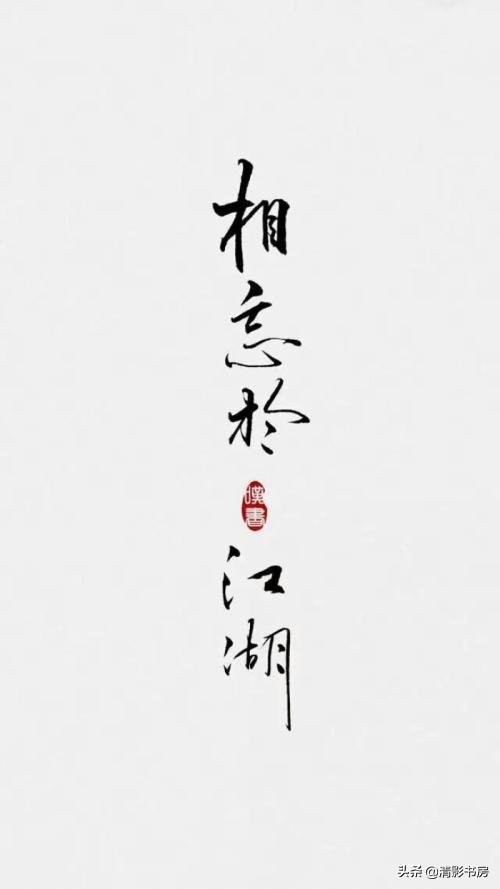 相忘於
江湖
头条@清影书房